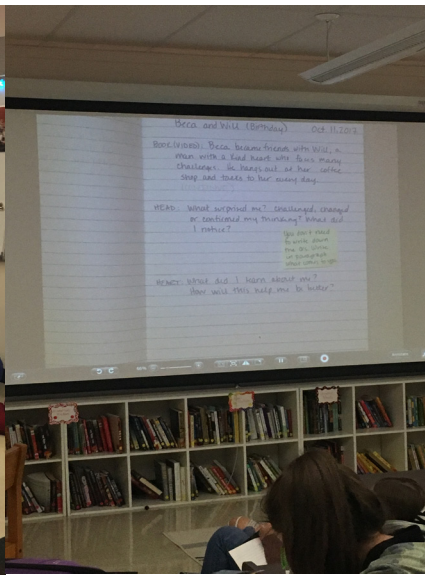 Beca and Will (Birthday) Oct 11, 2017
BOOK (VIDEO): Beca became friends with Will, a
man with a kind heart who faces many
challenges. He hangs out at her coffee
shop and talks to her every day.
HEAD: What surprised me? Challenged, changed
or confirmed my thinking? What did
I notice?
You don't need
to write down
in paragraph
HEART: What did I learn about me?
How will this help me to be better?